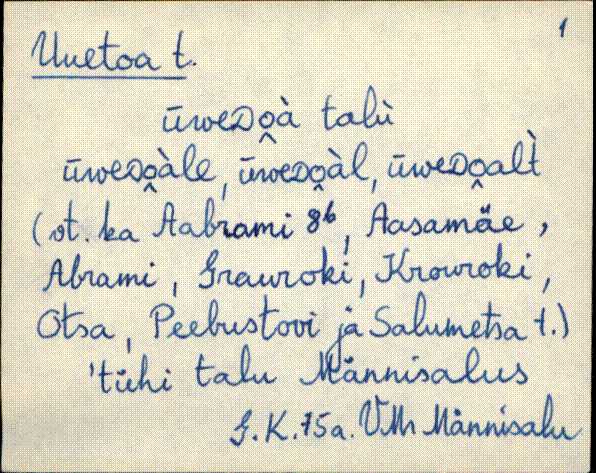 1
Uuetoa t.
ūweᴅo̭à talù
ūweᴅo̭àle, ūweᴅo̭àl, ūweᴅo̭alt̀
(vt. ka Aabrami 8b, Aasamäe,
Abrami, Grauroki, Krouroki,
Otsa, Peebustovi ja Salumetsa t.)
'tühi talu Männisalus
G.K. 75a. VMr Männisalu